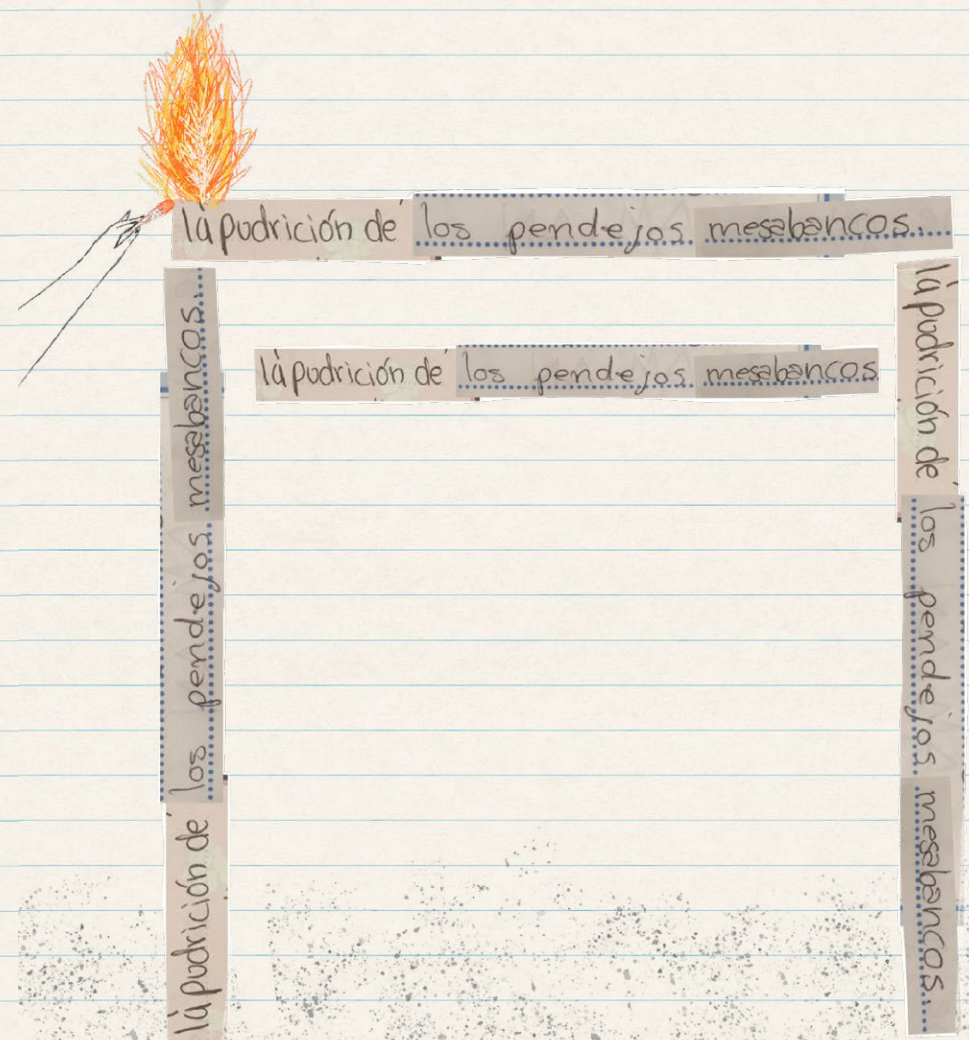 la pudrición de los pendejos mesabancos.
la pudrición de los pendejos mesabancos
la pudrición de los pendejos mesabancos.
la pudrición de los pendejos mesabancos.